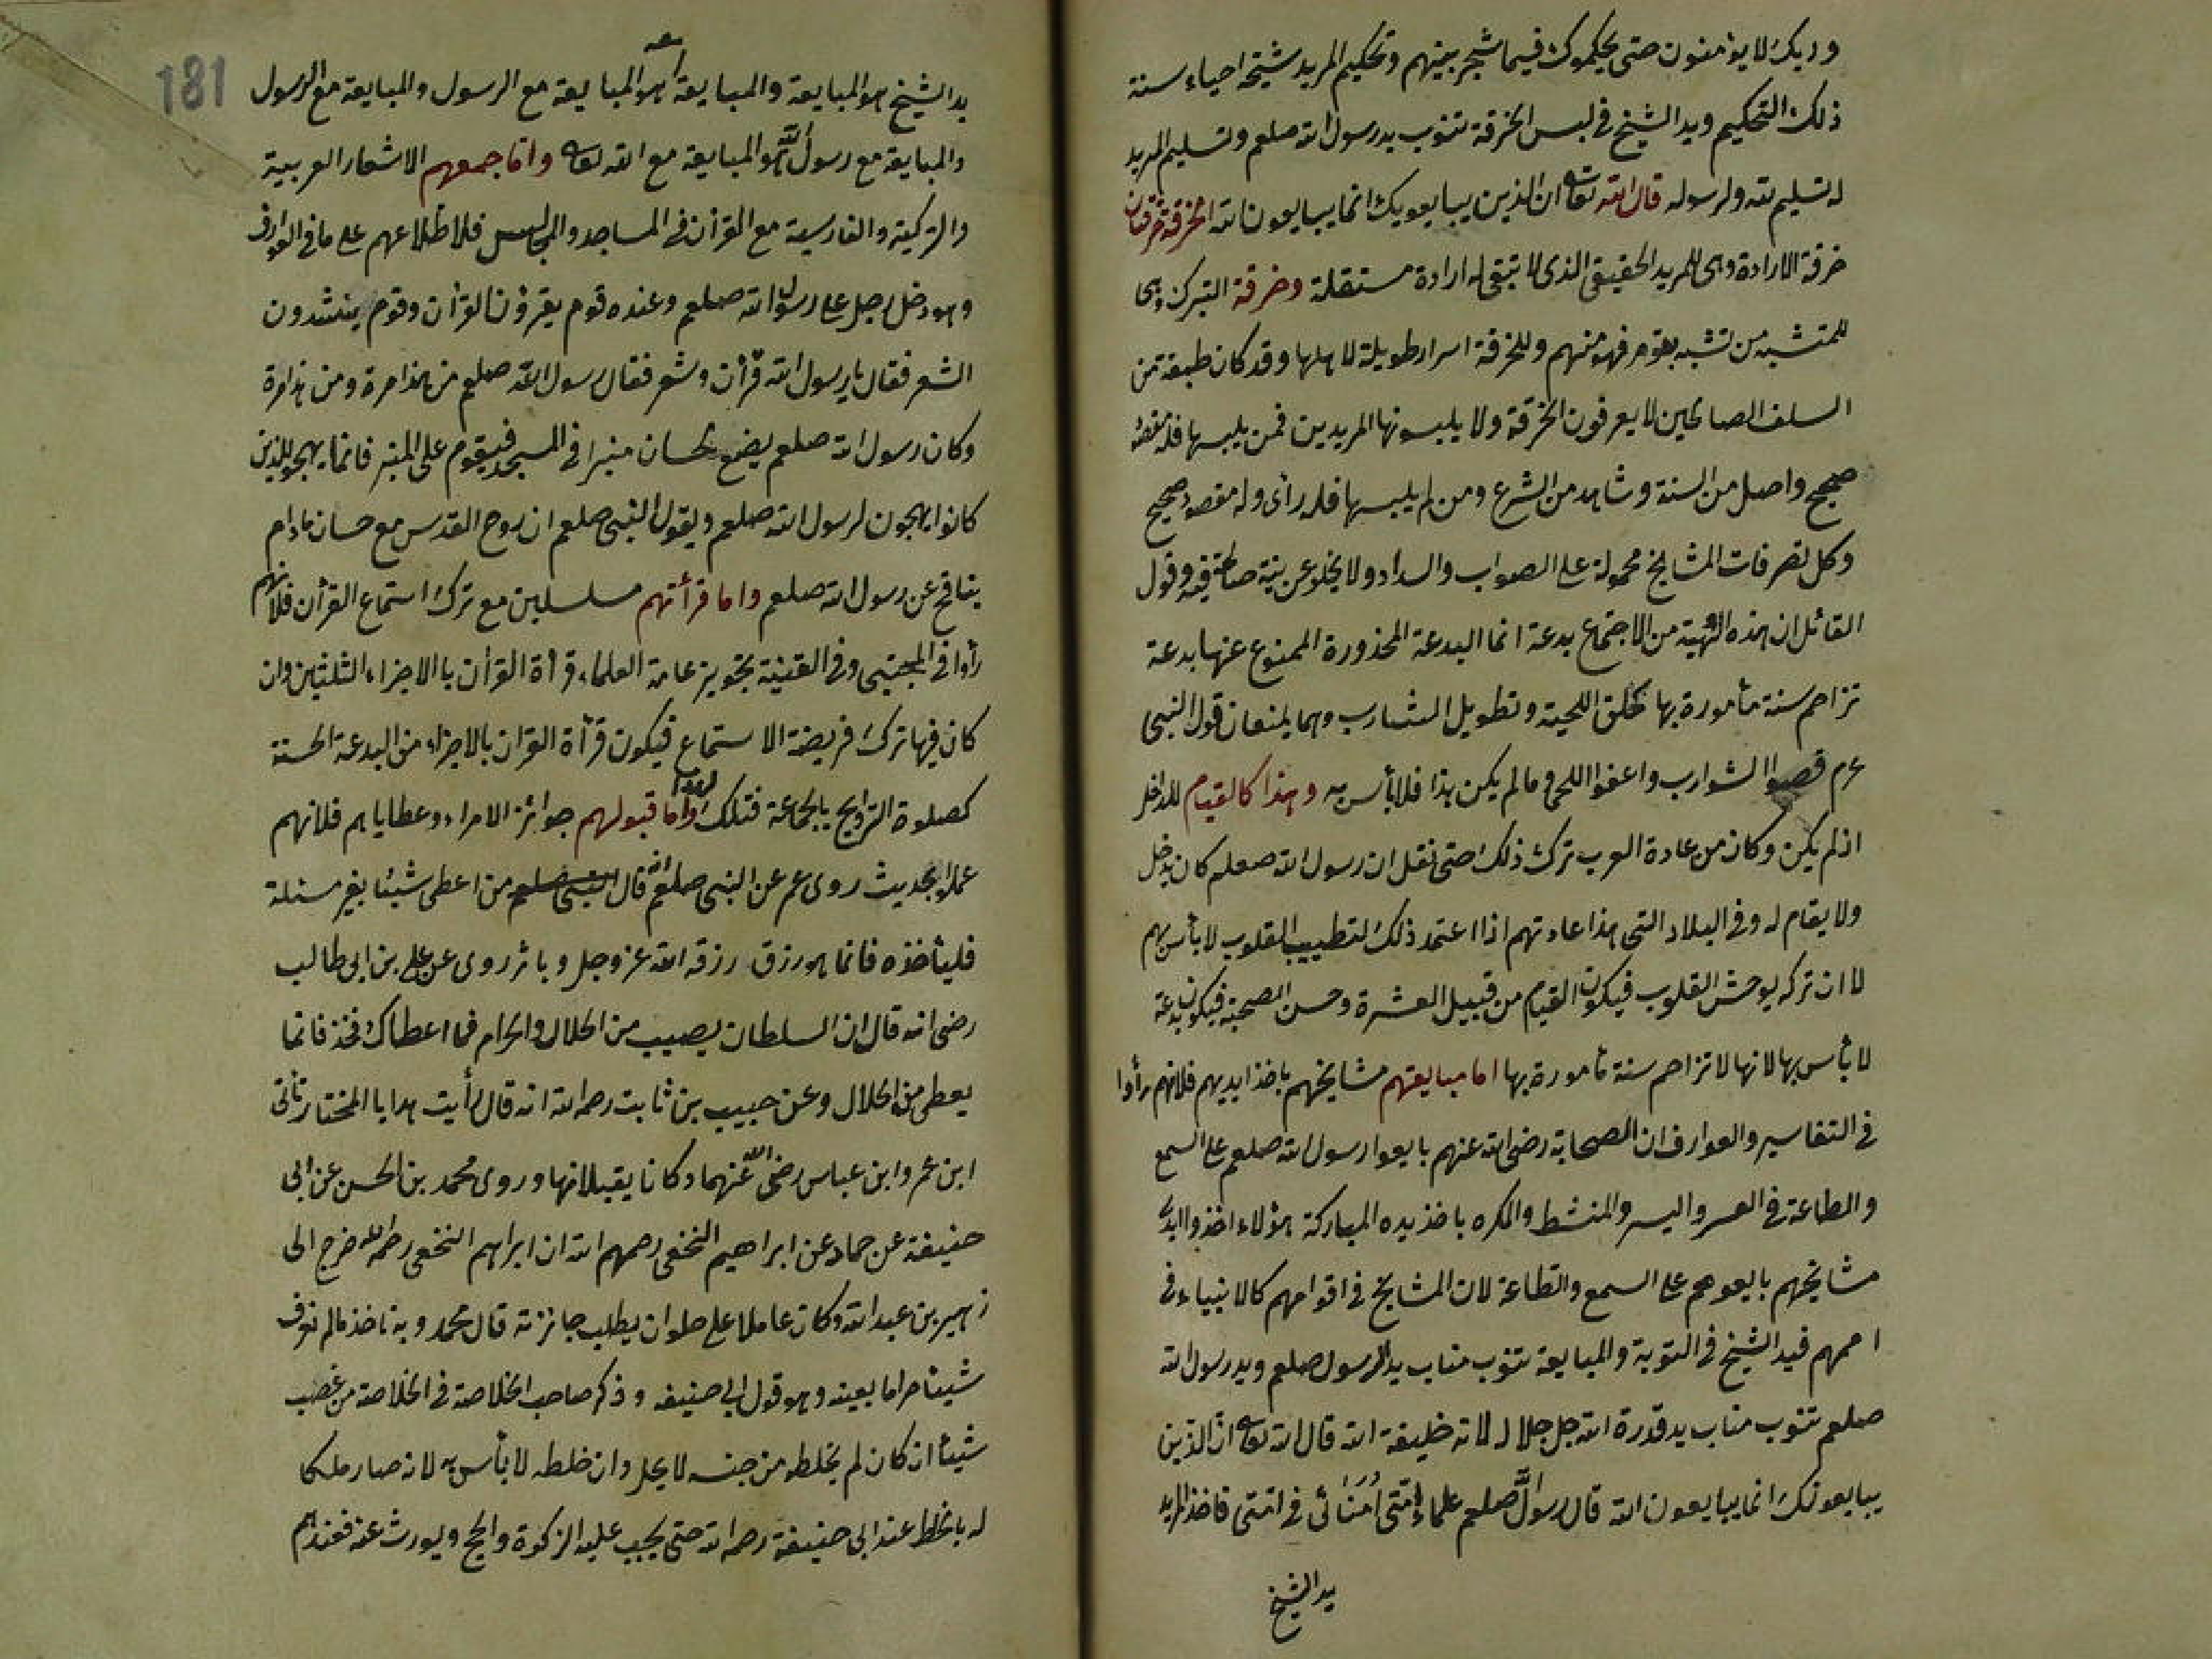 وربك لا يؤمنون حتى يحكموك فيما شجر بينهم وتحكيم المريد شيخه احياء سنة
ذلك التحكيم ويد الشيخ في لبس الخرقة تنوب يد رسول الله صلعم وتسليم المريد
له تسليم لله ولرسوله قال الله تعالى ان الذين يبايعونك انما يبايعون الله الخرقة خرقتان
خرقة الارادة وهي للمريد الحقيقي الذي لا تبقى له ارادة مستقلة وخرقة التبرك وهي
للمتشبه من تشبه بقوم فهو منهم وللخرقة اسرار طويلة لاهلها وقد كان طبقة من
السلف الصالحين لا يعرفون الخرقة ولا يلبسونها المريدين فمن يلبسها فله مقصد
صحيح واصل من السنة وشاهد من الشرع ومن لم يلبسها فله رأى وله مقصود صحيح
وكل تصرفات المشايخ محمولة على الصواب والسداد ولا يخلو عن نية صالحة فيه وقول
القائل ان هذه الهيئة من الاجتماع بدعة انما البدعة المحذورة الممنوع عنها بدعة
تزاحم سنة مأمورة بها كحلق اللحية وتطويل الشارب وهما يمنعان قول النبى
عم قصوا الشوارب واعفوا اللحى وما لم يكن هذا فلا بأس به وهذا كالقيام للداخل
اذ لم يكن وكان من عادة العرب ترك ذلك حتى نقل ان رسول الله صعلم كان يدخل
ولا يقام له وفي البلاد التي هذا عادتهم اذا اعتمد ذلك لتطييب القلوب لا بأس بهم
لا ان تركه يوحش القلوب فيكون القيام من قبيل العشرة وحسن الصحبة فيكون بدعة
لا بأس بها لانها لا تزاحم سنة مأمورة بها اما مبايعتهم مشايخهم باخذ ايديهم فلانهم رأوا
في التفاسير والعوارف ان الصحابة رضى الله عنهم بايعوا رسول الله صلعم على السمع
والطاعة في العسر واليسر والمنشط والمكره باخذ يده المباركة هؤلاء اخذوا ايدي
مشايخهم بايعوهم على السمع والطاعة لان المشايخ في اقوامهم كالانبياء في
اممهم فيد الشيخ في التوبة والمبايعة تنوب مناب يد الرسول صلعم ويد رسول الله
صلعم تنوب مناب يد قدرة الله جل جلاله لانه خليفة الله قال الله تعالى ان الذين
يبايعونك انما يبايعون الله قال رسول الله صلعم علماء امتى اُمَنَائى فى امتى فاخذ المريد
يد الشيخ
181
يد الشيخ هو المبايعة والمبايعة معه هو المبايعة مع الرسول والمبايعة مع الرسول
والمبايعة مع رسول الله هو المبايعة مع الله تعالى واما جمعهم الاشعار العربية
والتركية والفارسية مع القرأن في المساجد والمجالس فلاطلاعهم على ما فى العوارف
وهو دخل رجل على رسول الله صلعم وعنده قوم يقرؤن القرأن وقوم ينشدون
الشعر فقال يا رسول الله قرأن وشعر فقال رسول الله صلعم من هذا مرة ومن هذا مرة
وكان رسول الله صلعم يضع لحسان منبرا في المسجد فيقوم على المنبر فانما يهجو الذين
كانوا يهجون لرسول الله صلعم ويقول النبى صلعم ان روح القدس مع حسان مادام
ينافح عن رسول الله صلعم واما قرأتهم مسلسلين مع ترك استماع القرأن فلانهم
رأوا فى المجتبى وفى القنية تجويز عامة العلماء قرأة القرأن بالاجزاء الثلثين وان
كان فيها ترك فريضة الاستماع فيكون قرأة القرأن بالاجزاء من البدعة الحسنة
كصلوة التراويح بالجماعة فتلك واما قبولهم جوائز الامراء وعطاياهم فلانهم
عملوا بحديث روى عمر عن النبى صلعم انه قال من اعطى شيئا بغير مسئلة
فليأخذه فانما هو رزق رزقه الله عز وجل وباثر روى عن على بن ابى طالب
رضى الله قال ان السلطان يصيب من الحلال والحرام فما اعطاك فخذ فانما
يعطى من الحلال وعن حبيب بن ثابت رحمه الله انه قال رأيت هدايا المختار تأتى
ابن عمر وابن عباس رضى الله عنهما وكانا يقبلانها وروى محمد بن الحسن عن ابى
حنيفة عن حماد عن ابراهيم النخعى رحمهم الله ان ابراهيم النخعى رحمه الله خرج الى
زهير بن عبد الله وكان عاملا على حلوان يطلب جائزته قال محمد وبه ناخذ مالم نعرف
شيئا حراما بعينه وهو قول ابى حنيفه وذكر صاحب الخلاصة فى الخلاصة من غصب
شيئا ان كان لم يخلطه من جنسه لا يحل وان خلطه لا بأس به لانه صار ملكا
له بالخلط عند ابى حنيفة رحمه الله حتى يجب عليه الزكوة والحج ويورث عنه فعندهم